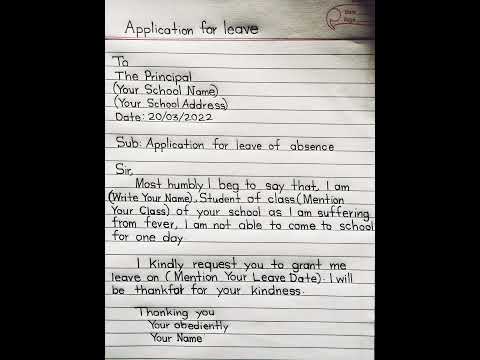 Application for leave
To
The Principal
(Your School Name)
(Your School Address)
Date: 20/03/2022
Sub: Application for leave of absence
Sir,
Most humbly I beg to say that, I am
(Write Your Name), Student of class (Mention
Your Class) of your school as I am suffering
from fever, I am not able to come to school
for one day
I Kindly request you to grant me
leave on (Mention Your Leave Date). I will
be thankfat for your kindness.
Thanking you
Your obediently
Your Name